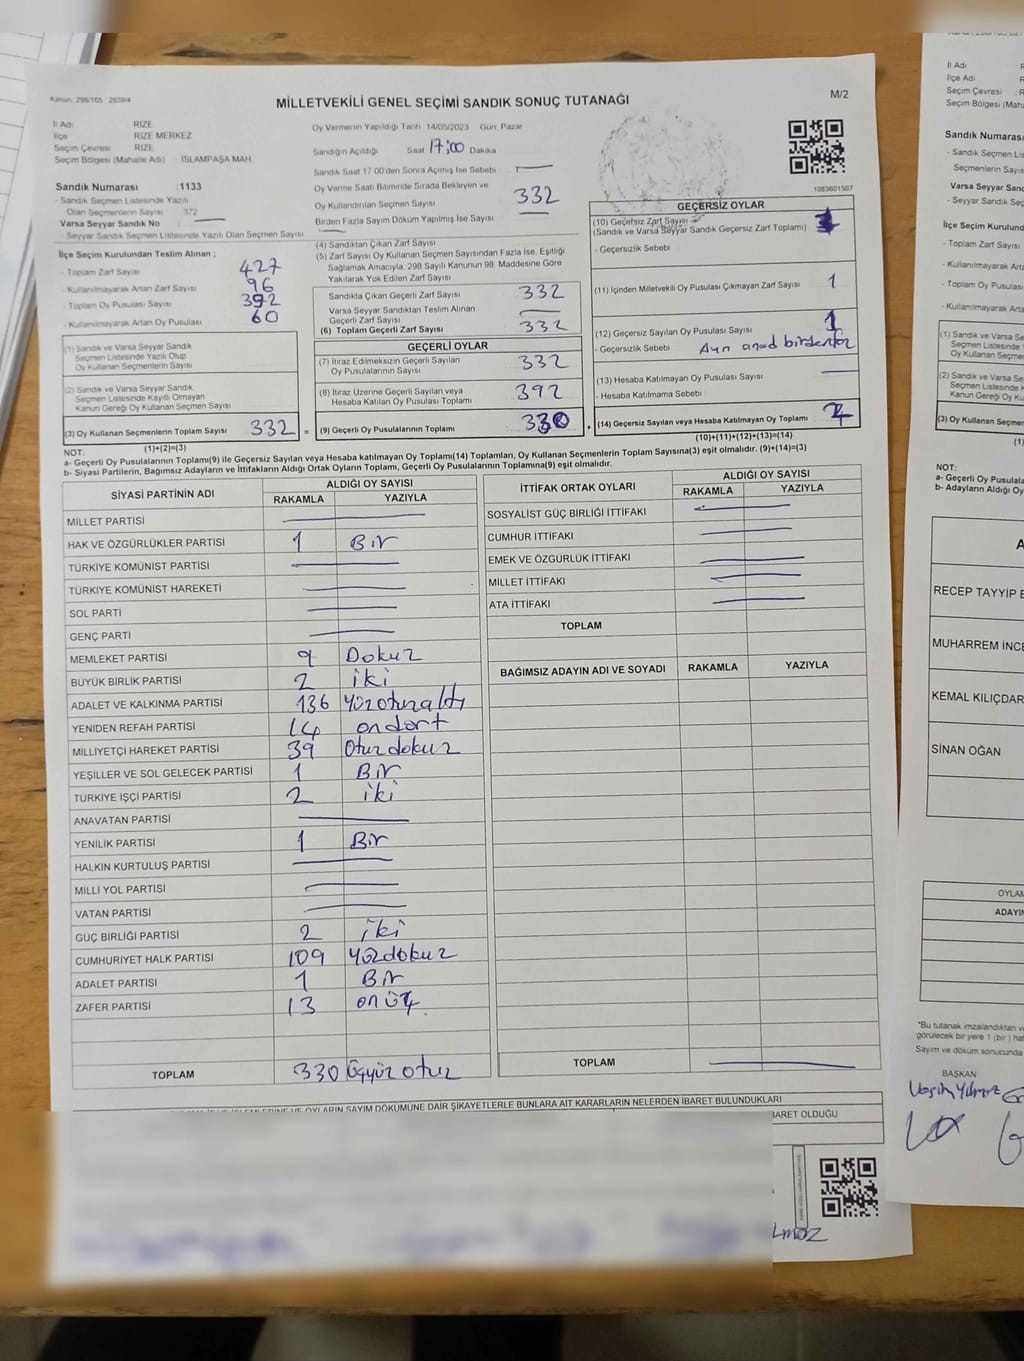 Kanun, 298/105 2839/4
MİLLETVEKİLİ GENEL SEÇİMİ SANDIK SONUÇ TUTANAĞI
M/2
İl Adı RİZE
İlçe RİZE MERKEZ
Seçim Çevresi RİZE
Seçim Bölgesi (Mahalle Adı) İSLAMPAŞA MAH
Oy Vermenin Yapıldığı Tarih :14/05/2023 Gün: Pazar
Sandığın Açıldığı Saat 17:00 Dakika
Sandık Saat 17:00'den Sonra Açılmış İse Sebebi
Oy Verme Saati Bitiminde Sırada Bekleyen ve
Oy Kullandırılan Seçmen Sayısı 332
Birden Fazla Sayım Döküm Yapılmış İse Sayısı
1083601507
Sandık Numarası :1133
- Sandık Seçmen Listesinde Yazılı
Olan Seçmenlerin Sayısı 372
Varsa Seyyar Sandık No
- Seyyar Sandık Seçmen Listesinde Yazılı Olan Seçmen Sayısı
İlçe Seçim Kurulundan Teslim Alınan ;
- Toplam Zarf Sayısı 427
- Kullanılmayarak Artan Zarf Sayısı 96
- Toplam Oy Pusulası Sayısı 392
- Kullanılmayarak Artan Oy Pusulası 60
(1) Sandık ve Varsa Seyyar Sandık
Seçmen Listesinde Yazılı Olup
Oy Kullanan Seçmen Sayısı
(2) Sandık ve Varsa Seyyar Sandık
Seçmen Listesinde Kayıtlı Olmayan
Kanun Gereği Oy Kullanan Seçmen Sayısı
(3) Oy Kullanan Seçmenlerin Toplam Sayısı 332 =
(1)+(2)=(3)
(4) Sandıktan Çıkan Zarf Sayısı
(5) Zarf Sayısı Oy Kullanan Seçmen Sayısından Fazla İse, Eşitliği
Sağlamak Amacıyla, 298 Sayılı Kanunun 98. Maddesine Göre
Yakılarak Yok Edilen Zarf Sayısı
Sandıkta Çıkan Geçerli Zarf Sayısı 332
Varsa Seyyar Sandıktan Teslim Alınan
Geçerli Zarf Sayısı
(6) Toplam Geçerli Zarf Sayısı 332
GEÇERLİ OYLAR
(7) İtiraz Edilmeksizin Geçerli Sayılan
Oy Pusulalarının Sayısı 332
(8) İtiraz Üzerine Geçerli Sayılan veya
Hesaba Katılan Oy Pusulası Toplamı 392
(9) Geçerli Oy Pusulalarının Toplamı 330 +
GEÇERSİZ OYLAR
(10) Geçersiz Zarf Sayısı
(Sandık ve Varsa Seyyar Sandık Geçersiz Zarf Toplamı)
- Geçersizlik Sebebi
(11) İçinden Milletvekili Oy Pusulası Çıkmayan Zarf Sayısı 1
(12) Geçersiz Sayılan Oy Pusulası Sayısı 1
- Geçersizlik Sebebi
(13) Hesaba Katılmayan Oy Pusulası Sayısı
- Hesaba Katılmama Sebebi
(14) Geçersiz Sayılan veya Hesaba Katılmayan Oy Toplamı 2
(10)+(11)+(12)+(13)=(14)
NOT:
a- Geçerli Oy Pusulalarının Toplamı(9) ile Geçersiz Sayılan veya Hesaba katılmayan Oy Toplamı(14) Toplamları, Oy Kullanan Seçmenlerin Toplam Sayısına(3) eşit olmalıdır. (9)+(14)=(3)
b- Siyasi Partilerin, Bağımsız Adayların ve İttifakların Aldığı Ortak Oyların Toplamı, Geçerli Oy Pusulalarının Toplamına(9) eşit olmalıdır.
SİYASİ PARTİNİN ADI ALDIĞI OY SAYISI
RAKAMLA YAZIYLA
MİLLET PARTİSİ
HAK VE ÖZGÜRLÜKLER PARTİSİ 1 Bir
TÜRKİYE KOMÜNİST PARTİSİ
TÜRKİYE KOMÜNİST HAREKETİ
SOL PARTİ
GENÇ PARTİ
MEMLEKET PARTİSİ 9 Dokuz
BÜYÜK BİRLİK PARTİSİ 2 iki
ADALET VE KALKINMA PARTİSİ 136 Yüzotuzaltı
YENİDEN REFAH PARTİSİ 14 ondört
MİLLİYETÇİ HAREKET PARTİSİ 39 Otuzdokuz
YEŞİLLER VE SOL GELECEK PARTİSİ 1 Bir
TÜRKİYE İŞÇİ PARTİSİ 2 iki
ANAVATAN PARTİSİ
YENİLİK PARTİSİ 1 Bir
HALKIN KURTULUŞ PARTİSİ
MİLLİ YOL PARTİSİ
VATAN PARTİSİ
GÜÇ BİRLİĞİ PARTİSİ 2 iki
CUMHURİYET HALK PARTİSİ 109 Yüzdokuz
ADALET PARTİSİ 1 Bir
ZAFER PARTİSİ 13 onüç
TOPLAM 330 Üçyüz otuz
İTTİFAK ORTAK OYLARI ALDIĞI OY SAYISI
RAKAMLA YAZIYLA
SOSYALİST GÜÇ BİRLİĞİ İTTİFAKI
CUMHUR İTTİFAKI
EMEK VE ÖZGÜRLÜK İTTİFAKI
MİLLET İTTİFAKI
ATA İTTİFAKI
TOPLAM
BAĞIMSIZ ADAYIN ADI VE SOYADI RAKAMLA YAZIYLA
TOPLAM
OYLARIN SAYIM DÖKÜMÜNE DAİR ŞİKAYETLERLE BUNLARA AİT KARARLARIN NELERDEN İBARET BULUNDUKLARI
BARET OLDUĞU
İl Adı
İlçe Adı
Seçim Çevresi
Seçim Bölgesi (Mah
Sandık Numarası
- Sandık Seçmen Lis
Seçmenlerin Sayıs
Varsa Seyyar Sand
- Seyyar Sandık Seç
İlçe Seçim Kurulund
- Toplam Zarf Sayısı
- Kullanılmayarak Artan
- Toplam Oy Pusulası
- Kullanılmayarak Artan
(1) Sandık ve Varsa Se
Seçmen Listesinde
Oy Kullanan Seçmen
(2) Sandık ve Varsa Sey
Seçmen Listesinde
Kanun Gereği Oy Ku
(3) Oy Kullanan Seçmen
NOT:
a- Geçerli Oy Pusulala
b- Adayların Aldığı Oy
A
RECEP TAYYİP E
MUHARREM İNCE
KEMAL KILIÇDAR
SİNAN OĞAN
OYLAM
ADAYIN
*Bu tutanak imzalandıktan v
görülecek bir yere 1 (bir ) hat
Sayım ve döküm sonucunda
BAŞKAN